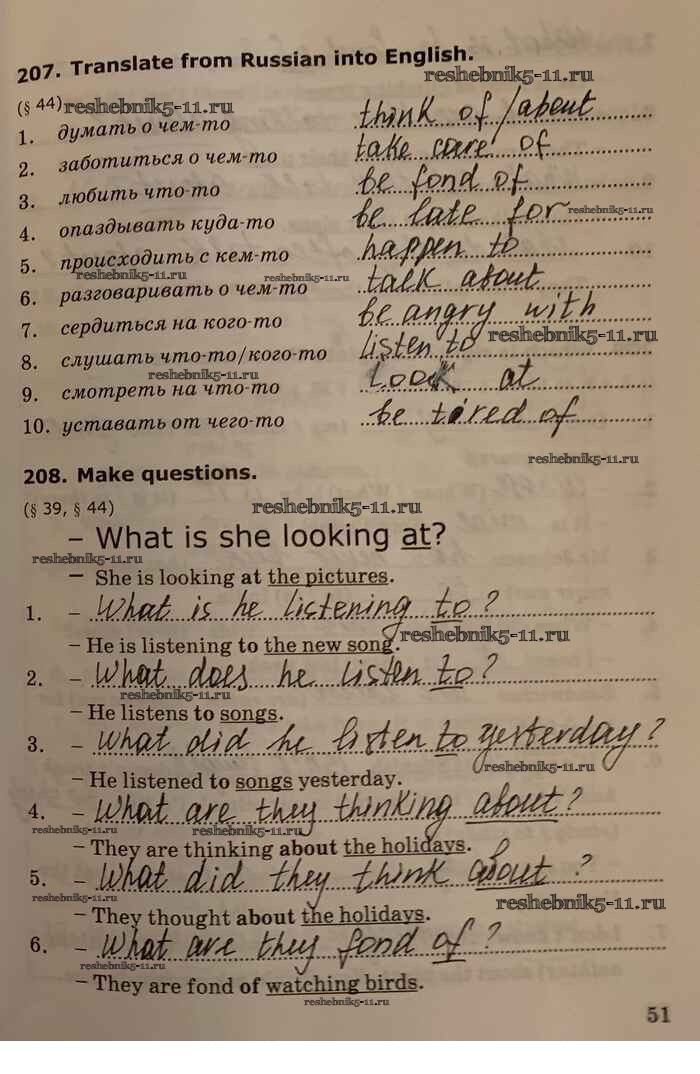 207. Translate from Russian into English.
reshebnik5-11.ru
(§ 44) reshebnik5-11.ru
1. думать о чем-то think of / about
2. заботиться о чем-то take care of
3. любить что-то be fond of
reshebnik5-11.ru
4. опаздывать куда-то be late for
5. происходить с кем-то happen to
reshebnik5-11.ru reshebnik5-11.ru
6. разговаривать о чем-то talk about
7. сердиться на кого-то be angry with
reshebnik5-11.ru
8. слушать что-то/кого-то listen to
reshebnik5-11.ru
9. смотреть на что-то Look at
10. уставать от чего-то be tired of
reshebnik5-11.ru
208. Make questions.
(§ 39, § 44) reshebnik5-11.ru
– What is she looking at?
reshebnik5-11.ru
– She is looking at the pictures.
1. – What is he listening to?
reshebnik5-11.ru
– He is listening to the new song.
2. – What does he listen to?
reshebnik5-11.ru
– He listens to songs.
3. – What did he listen to yesterday?
reshebnik5-11.ru
– He listened to songs yesterday.
4. – What are they thinking about?
reshebnik5-11.ru reshebnik5-11.ru
– They are thinking about the holidays.
5. – What did they think about?
reshebnik5-11.ru reshebnik5-11.ru
– They thought about the holidays.
6. – What are they fond of?
reshebnik5-11.ru
– They are fond of watching birds.
reshebnik5-11.ru
51